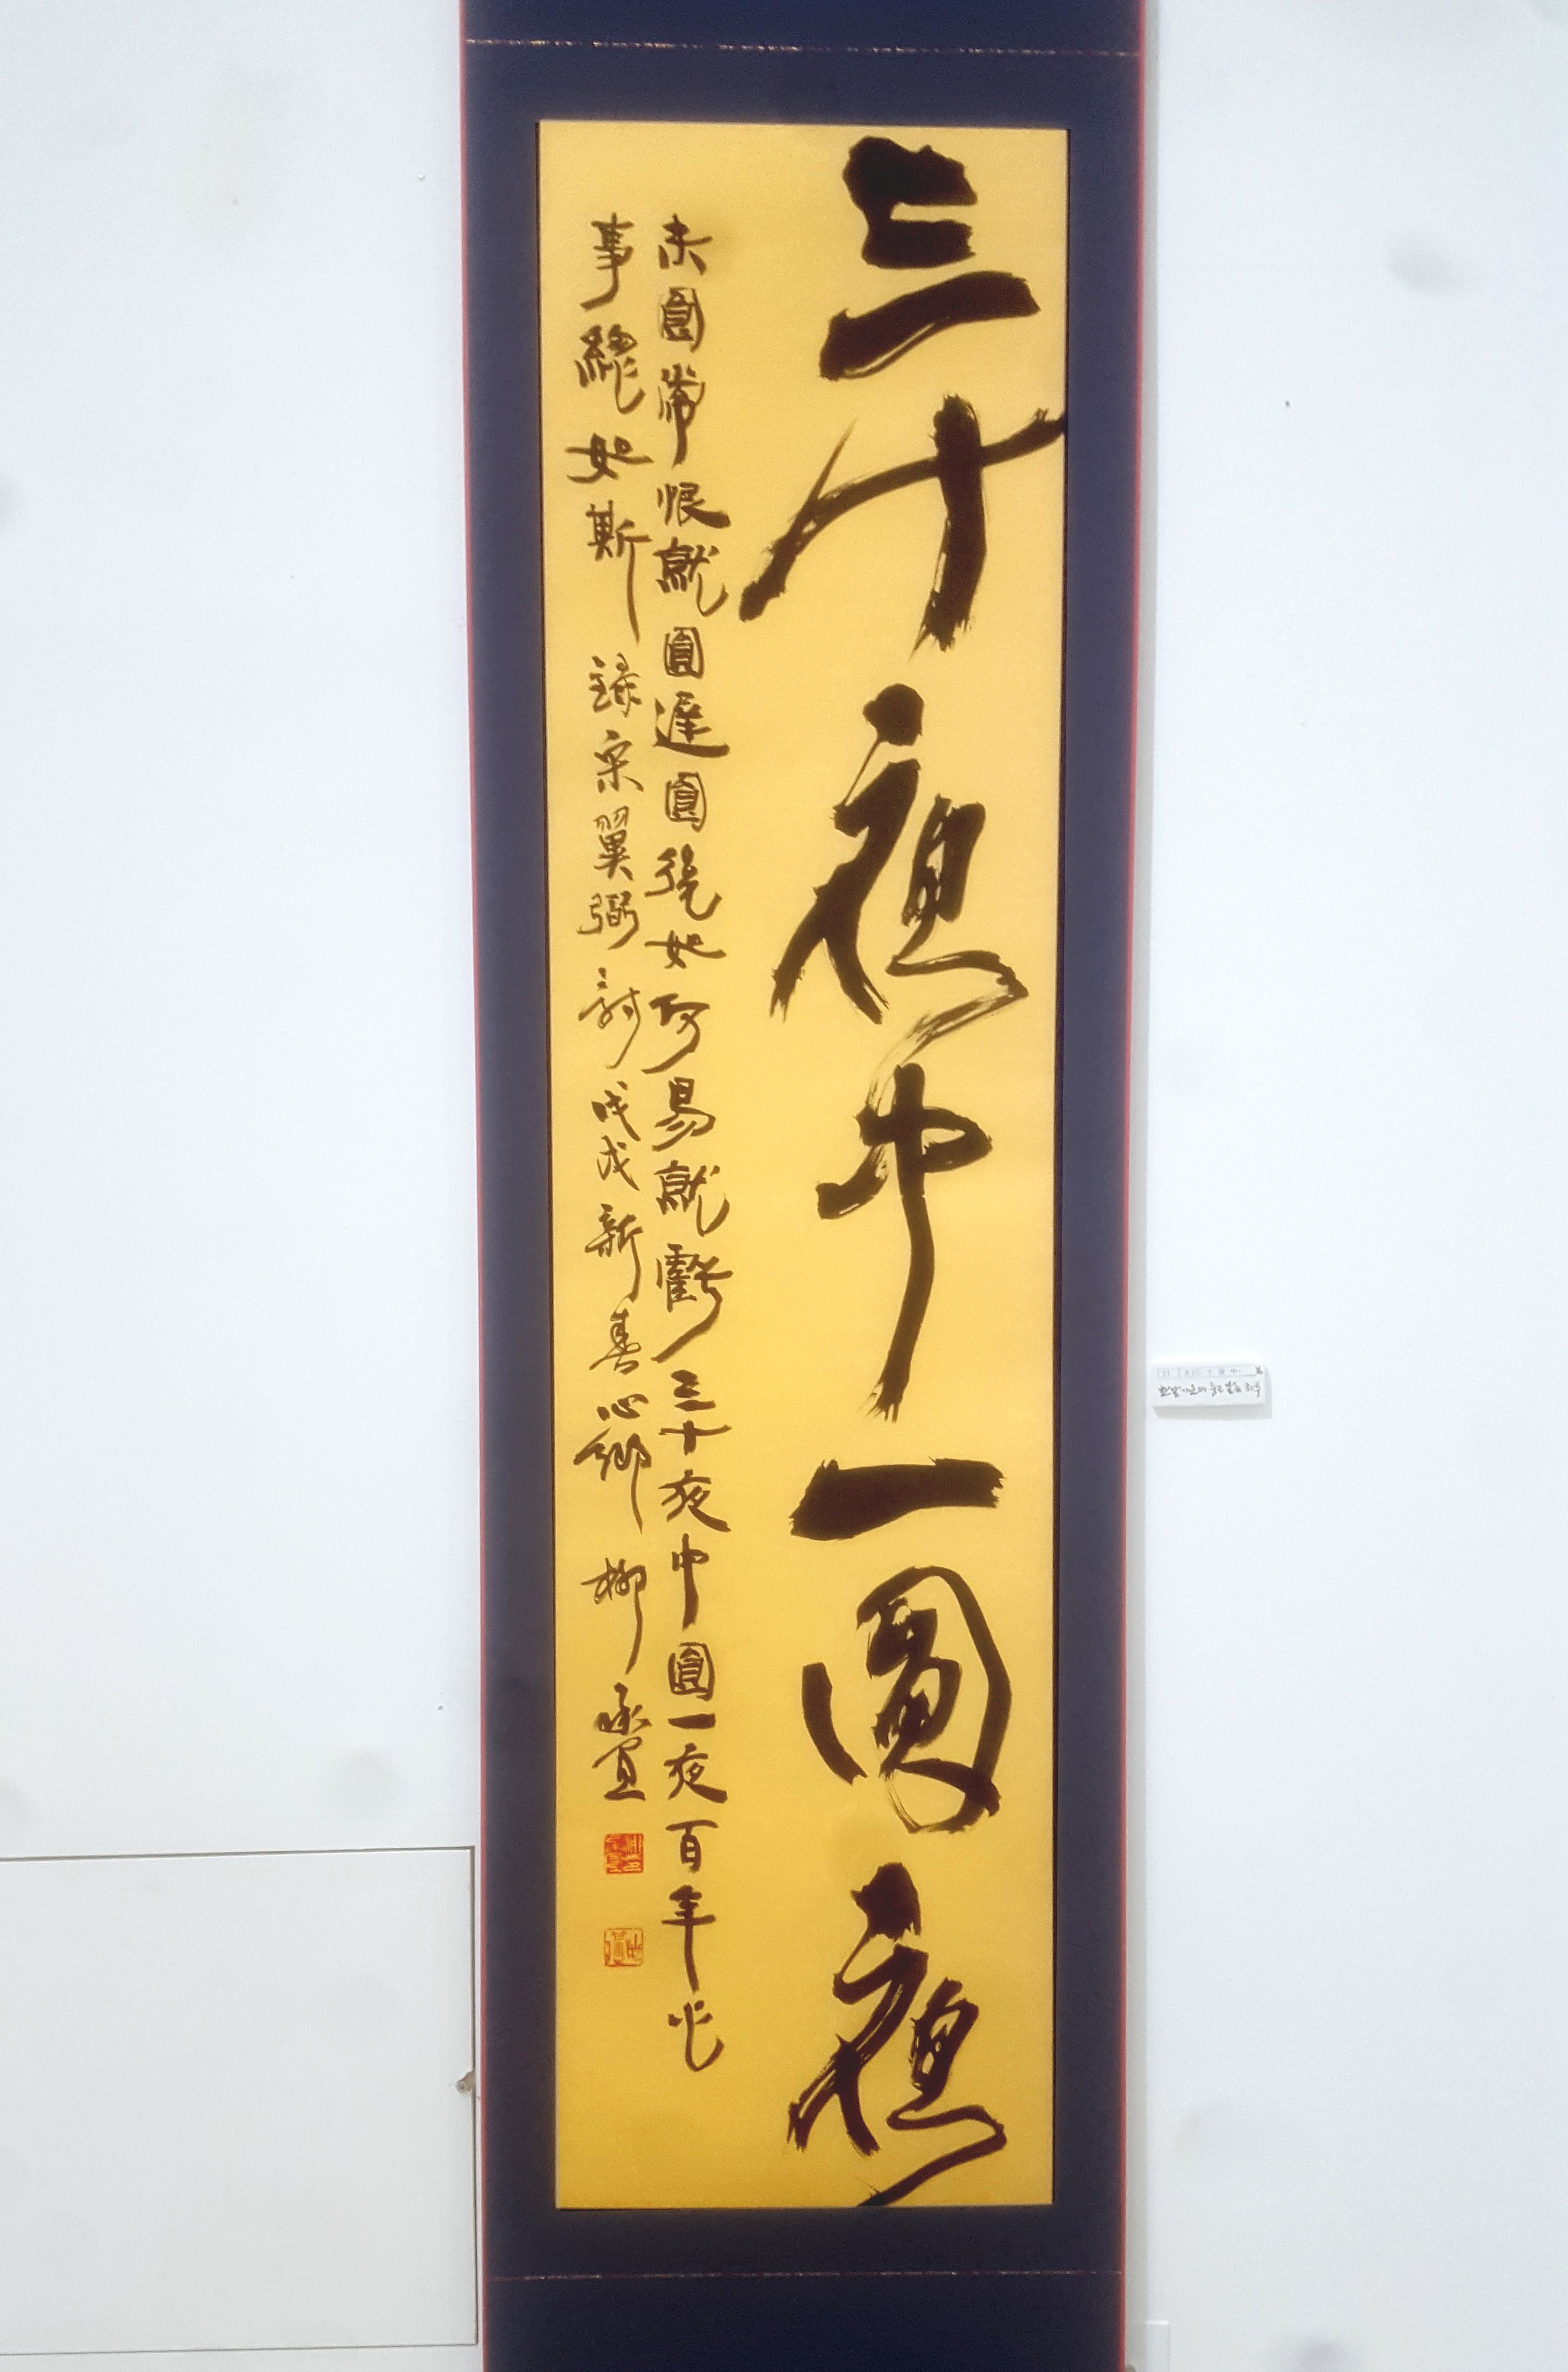 三十夜中一圓夜
未圓常恨就圓遲圓後如何易就虧三十夜中圓一夜百年心
事總如斯 錄宋翼弼詩 戊戌新春心鄕 柳承宜